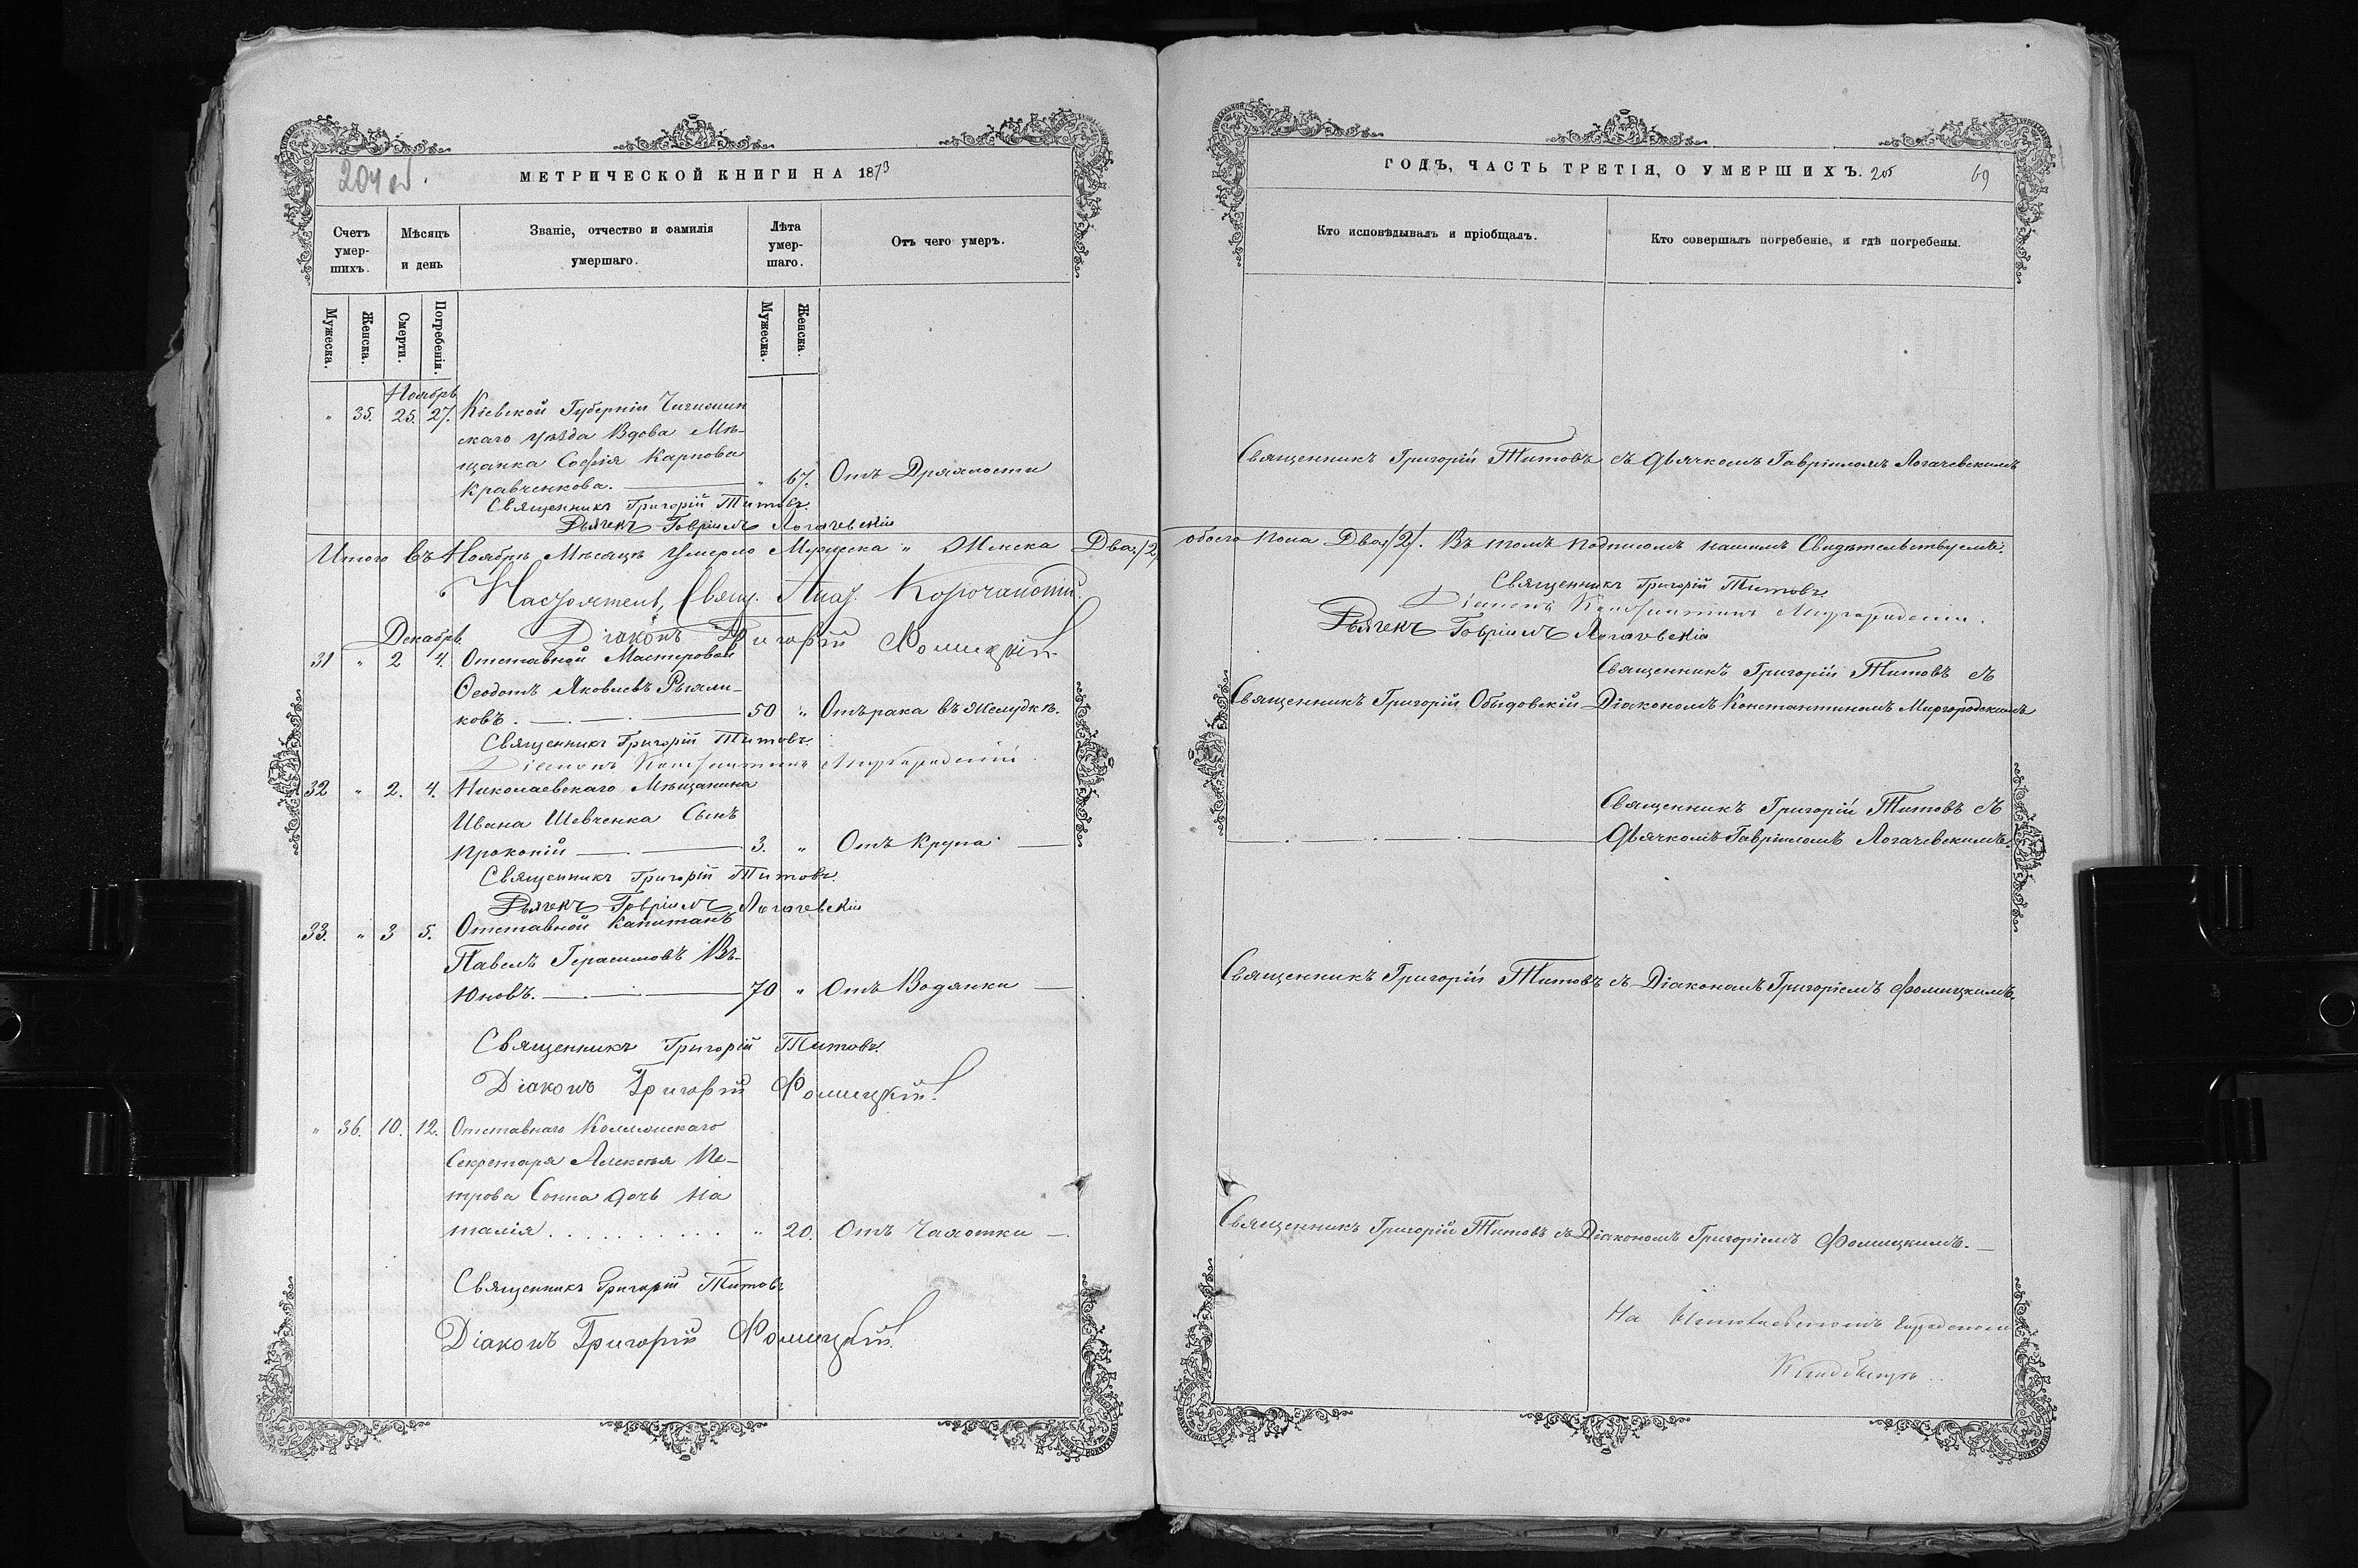 204 об.
МЕТРИЧЕСКОЙ КНИГИ НА 1873
Счетъ умер-шихъ.
Мѣсяцъ и день
Званіе, отчество и фамилія умершаго.
Лѣта умер-шаго.
Отъ чего умеръ.
Мужеска.
Женска.
Смерти.
Погребенія.
Мужеска.
Женска.
Ноябрь
" 35. 25. 27. Кіевской Губерніи Чигирин
скаго уѣзда Вдова Мѣ-
щанка Софія Карпова
Кравченкова. " 67. Отъ Дряхлости
Священникъ Григорій Титовъ.
Дьячекъ Гавріилъ Логачевскій
Итого въ Ноябрѣ Мѣсяцѣ умерло Мужеска " Женска Два /2/
Настоятель, Свящ.
Діаконъ Григорій Фомицкій
Декабрь
31 " 2 4. Отставной Мастеровой
Ѳеодотъ Яковлевъ
ковъ. 50 " Отъ рака въ желудкѣ.
Священникъ Григорій Титовъ.
Діаконъ Константинъ Миргородскій
32 " 2. 4. Николаевскаго Мѣщанина
Ивана Шевченка Сынъ
Прокопій 3. " Отъ Крупа
Священникъ Григорій Титовъ.
Дьячекъ Гавріилъ Логачевскій
33. " 3 5. Отставной Капитанъ
Павелъ Герасимовъ Вь-
юновъ. 70 " Отъ Водянки
Священникъ Григорій Титовъ.
Діаконъ Григорій Фомицкій.
" 36. 10. 12. Отставнаго Коллежскаго
Секретаря Алексѣя Пе-
трова Сонна дочь На
талія " 20. Отъ Чахотки
Священникъ Григорій Титовъ
Діаконъ Григорій Фомицкій.
ГОДЪ, ЧАСТЬ ТРЕТІЯ, О УМЕРШИХЪ. 205
69
Кто исповѣдывалъ и пріобщалъ.
Кто совершалъ погребеніе, и гдѣ погребены.
Священникъ Григорій Титовъ съ дьячкомъ Гавріиломъ Логачевскимъ
обоего пола Два /2/. Въ томъ подписомъ нашимъ Свидѣтельствуемъ:
Священникъ Григорій Титовъ.
Діаконъ Константинъ Миргородскій.
Дьячекъ Гавріилъ Логачевскій
Священникъ Григорій Титовъ съ
Священникъ Григорій Обыдовскій Діакономъ Константиномъ Миргородскимъ
Священникъ Григорій Титовъ съ
дьячкомъ Гавріиломъ Логачевскимъ.
Священникъ Григорій Титовъ съ Діакономъ Григоріемъ Фомицкимъ.
Священникъ Григорій Титовъ съ Діакономъ Григоріемъ Фомицкимъ.
На Николаевскомъ городскомъ
Кладбищѣ.